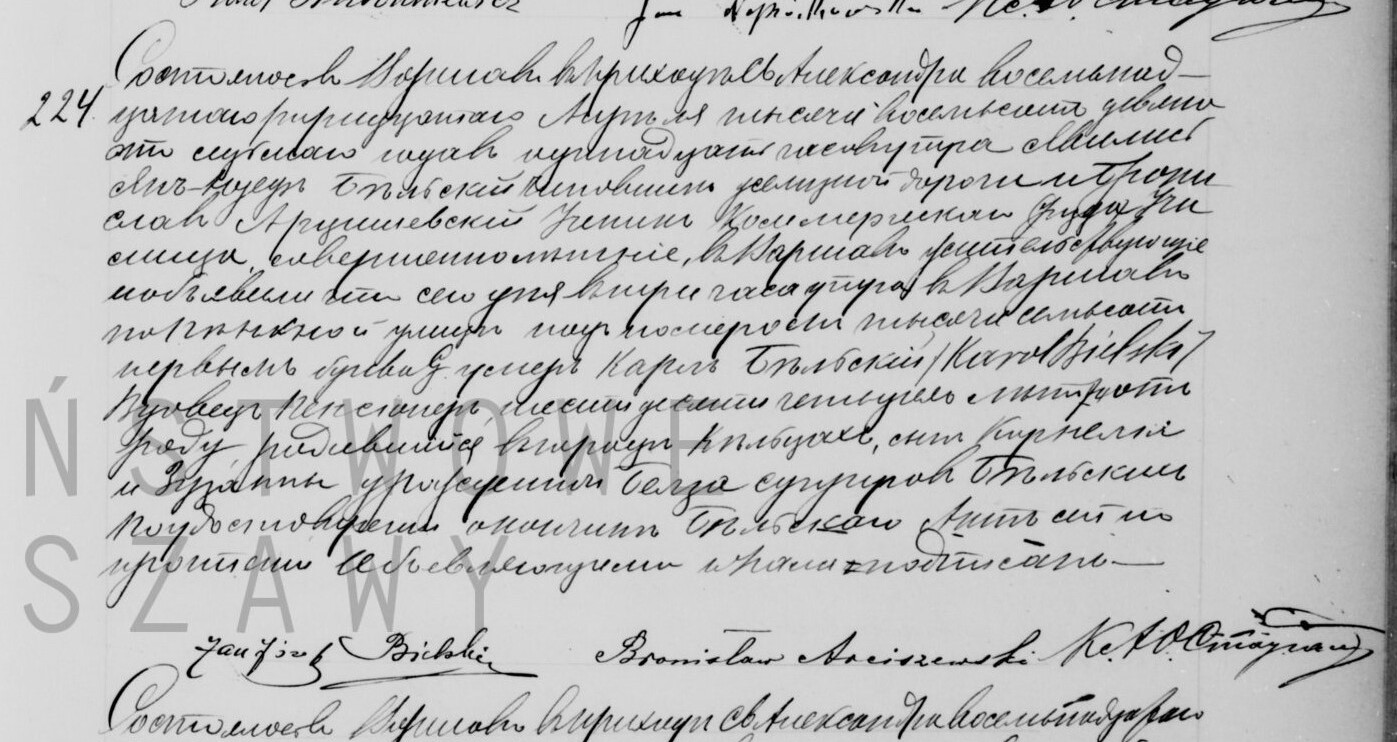 Состоялось в Варшаве в приходе Св Александра восемнад-
224. цатаго /тридцатаго Апреля тысяча восемьсот девяно
сто седьмаго года в одинадцать часов утра Явились
Ян-Юзеф Бѣльскій чиновник желѣзной дороги и Брони
слав Арцишевскій Ученик Коммерческаго Учи
лища, совершеннолѣтніе, в Варшаве жительствующіе
и объявили что сего дня в три часа утра в Варшаве
по Пенкной улице под номером тысяча семьсот
первым буква G. умер Кароль Бѣльскій /Karol Bielski/
Вдовец Пенсіонер шестидесяти четырех лет от
роду, родившійся в городе Кельцах, сын Корнелія
и Зузанны урожденной Белза супругов Бѣльских
По удостоверении о кончине Бѣльскаго Акт сей по
прочтении Объявляющим и Нами подписан —
Jan Józef Bielski Bronisław Arciszewski Кс. А. О.
Состоялось в Варшаве в приходе Св Александра восемнадцатаго
ŃSTWOWE
SZAWY